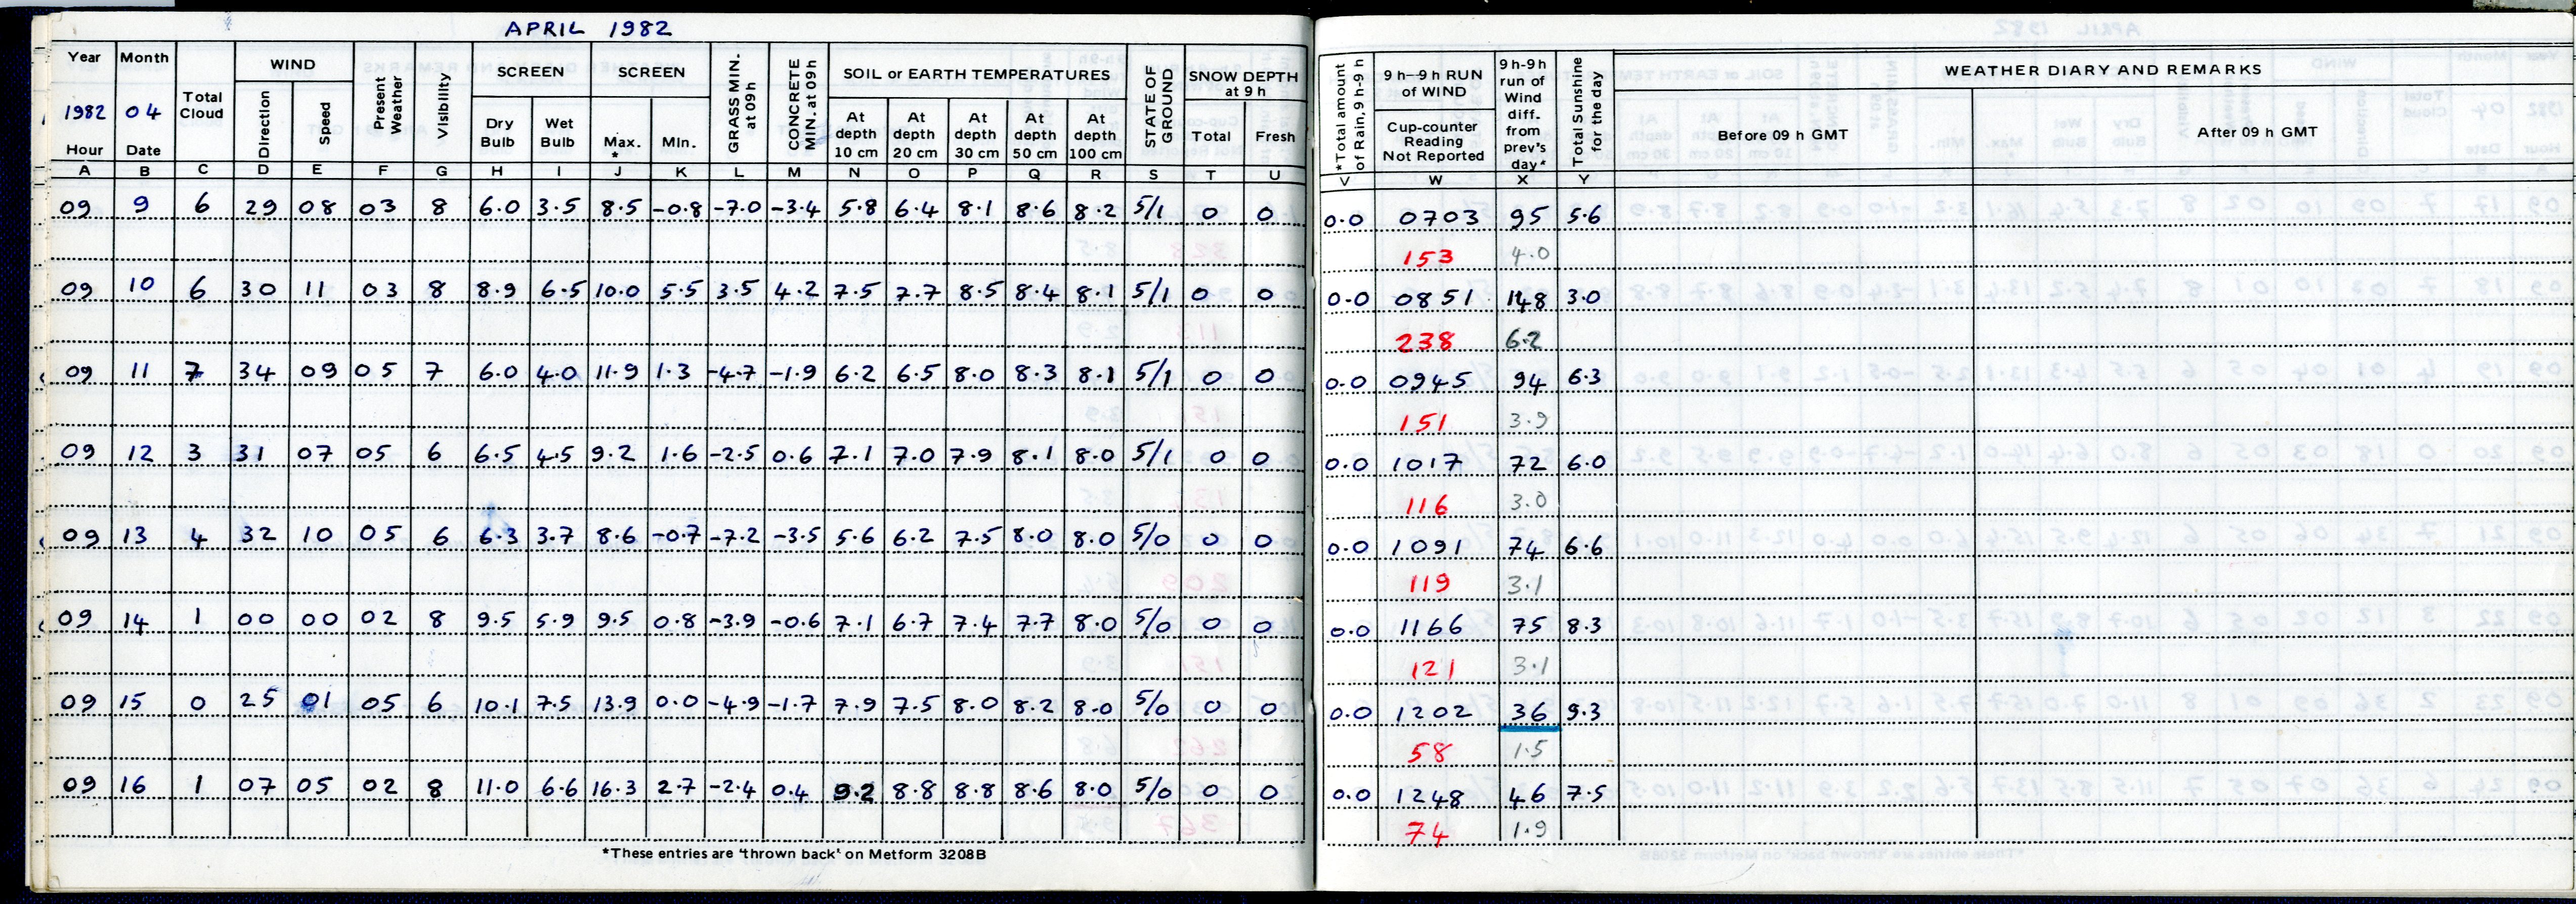 APRIL 1982
Year Month Total Cloud WIND Present Weather Visibility SCREEN SCREEN GRASS MIN. at 09h CONCRETE MIN. at 09h SOIL or EARTH TEMPERATURES STATE OF GROUND SNOW DEPTH at 9 h *Total amount of Rain, 9h-9 h 9 h–9 h RUN of WIND 9 h-9h run of Wind diff. from prev's day* Total Sunshine for the day WEATHER DIARY AND REMARKS
1982 04 Direction Speed Dry Bulb Wet Bulb Max. * Min. At depth 10 cm At depth 20 cm At depth 30 cm At depth 50 cm At depth 100 cm Total Fresh Cup-counter Reading Not Reported Before 09 h GMT After 09 h GMT
Hour Date
A B C D E F G H I J K L M N O P Q R S T U V W X Y
09 9 6 29 08 03 8 6.0 3.5 8.5 -0.8 -7.0 -3.4 5.8 6.4 8.1 8.6 8.2 5/1 0 0 0.0 0703 95 5.6
153 4.0
09 10 6 30 11 03 8 8.9 6.5 10.0 5.5 3.5 4.2 7.5 7.7 8.5 8.4 8.1 5/1 0 0 0.0 0851 148 3.0
238 6.2
09 11 7 34 09 05 7 6.0 4.0 11.9 1.3 -4.7 -1.9 6.2 6.5 8.0 8.3 8.1 5/1 0 0 0.0 0945 94 6.3
151 3.9
09 12 3 31 07 05 6 6.5 4.5 9.2 1.6 -2.5 0.6 7.1 7.0 7.9 8.1 8.0 5/1 0 0 0.0 1017 72 6.0
116 3.0
09 13 4 32 10 05 6 6.3 3.7 8.6 -0.7 -7.2 -3.5 5.6 6.2 7.5 8.0 8.0 5/0 0 0 0.0 1091 74 6.6
119 3.1
09 14 1 00 00 02 8 9.5 5.9 9.5 0.8 -3.9 -0.6 7.1 6.7 7.4 7.7 8.0 5/0 0 0 0.0 1166 75 8.3
121 3.1
09 15 0 25 01 05 6 10.1 7.5 13.9 0.0 -4.9 -1.7 7.9 7.5 8.0 8.2 8.0 5/0 0 0 0.0 1202 36 9.3
58 1.5
09 16 1 07 05 02 8 11.0 6.6 16.3 2.7 -2.4 0.4 9.2 8.8 8.8 8.6 8.0 5/0 0 0 0.0 1248 46 7.5
74 1.9
*These entries are 'thrown back' on Metform 3208B